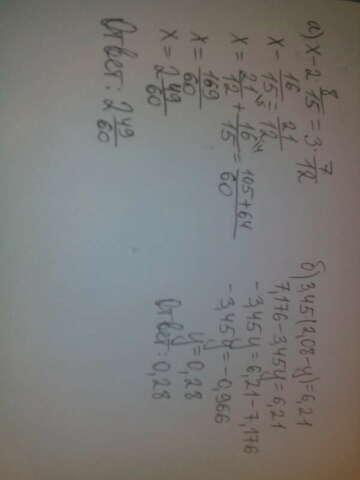 а) x - 2 8/15 = 3 · 7/12
x - 16/15 = 21/12
x = 21/12 + 16/15 = 105+64/60
x = 169/60
x = 2 49/60
Ответ: 2 49/60
б) 3,45(2,08-y)=6,21
7,176-3,45y=6,21
-3,45y=6,21-7,176
-3,45y=-0,966
y=0,28
Ответ: 0,28